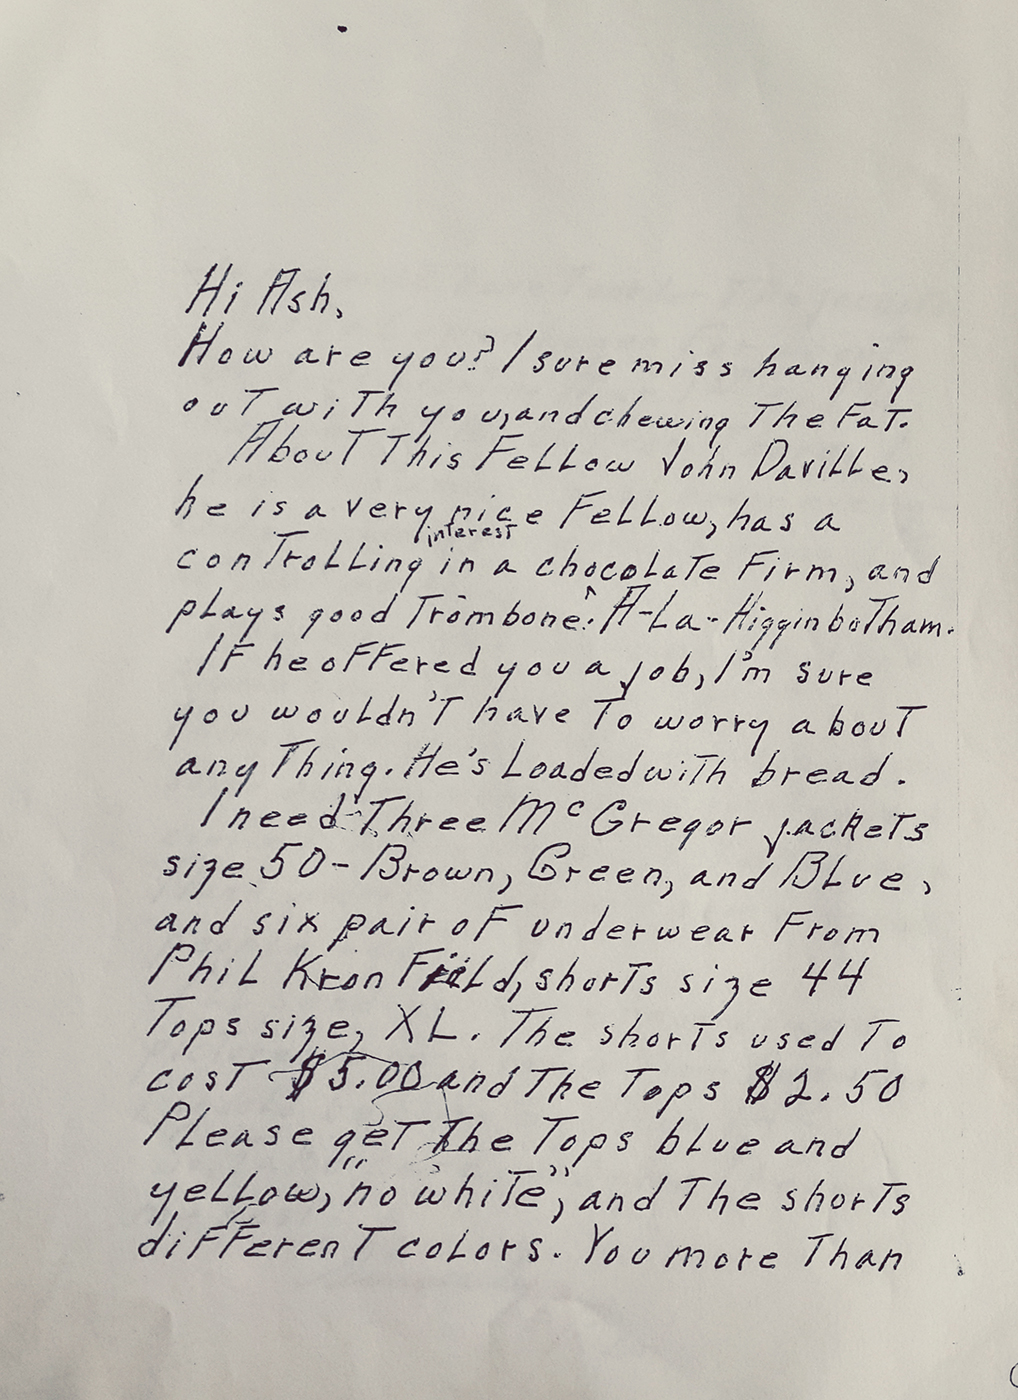 Hi Ash,
How are you? I sure miss hanging
out with you, and chewing The Fat.
About This Fellow John Daville,
he is a very nice Fellow, has a
controlling interest in a chocolate Firm, and
plays good Trombone. A-La-Higginbotham.
If he offered you a job, I'm sure
you wouldn't have To worry about
any Thing. He's Loaded with bread.
I need Three McGregor jackets
size 50 - Brown, Green, and Blue,
and six pair of underwear From
Phil Kron Field, shorts size 44
Tops size, XL. The shorts used To
cost $5.00 and The Tops $2.50
Please get The Tops blue and
yellow, "no white", and The shorts
different colors. You more Than